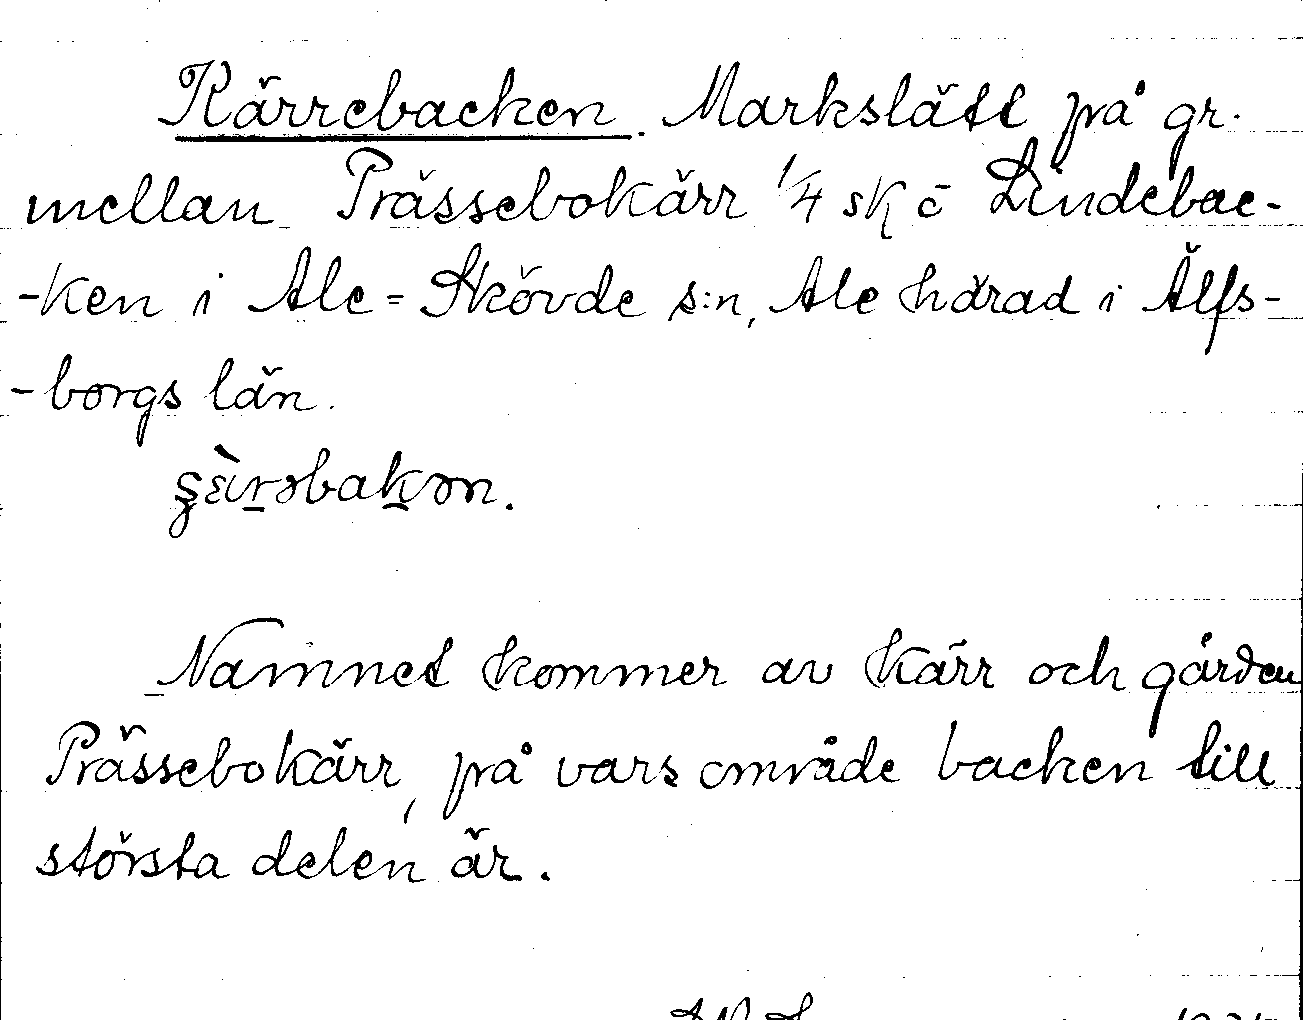 Kärrebacken. Markslätt på gr.
mellan Prässebokärr 1/4 sk o Lindebac-
-ken i Ale-Skövde s:n, Ale härad i Älfs-
-borgs län.
Namnet kommer av kärr och gården
Prässebokärr, på vars område backen till
största delen är.